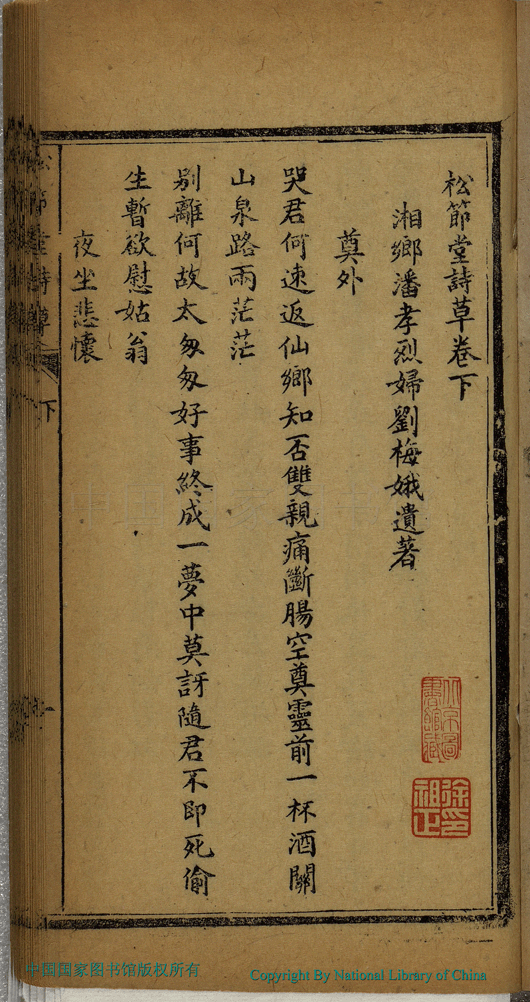 松節堂詩草卷下
湘鄉潘孝烈婦劉梅娥遺著
奠外
哭君何速返仙鄉知否雙親痛斷腸空奠靈前一杯酒關
山泉路兩茫茫
別離何故太匆匆好事終成一夢中莫訝隨君不即死偷
生暫欲慰姑翁
夜坐悲懷
松節堂詩草
下
北京圖書館藏
徐祖正印
中国国家图书馆版权所有
Copyright By National Library of China